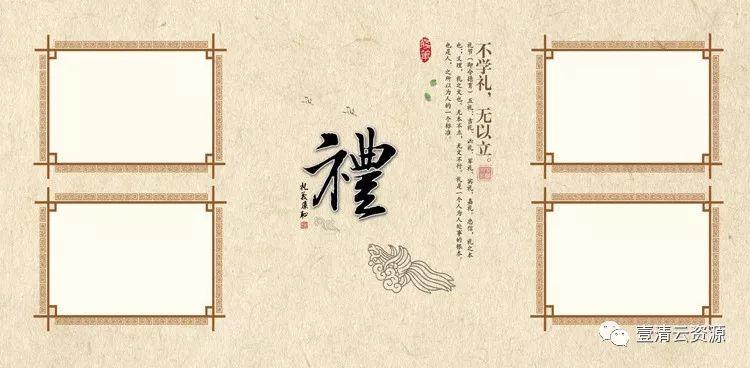 不学礼，无以立。
礼节（即今德育）五礼：吉礼、凶礼、军礼、宾礼、嘉礼；忠信，礼之本
也；义理，礼之文也。无本不立，无文不行，礼是一个人为人处事的根本。
也是人，之所以为人的一个标准。
禮
壹清云资源